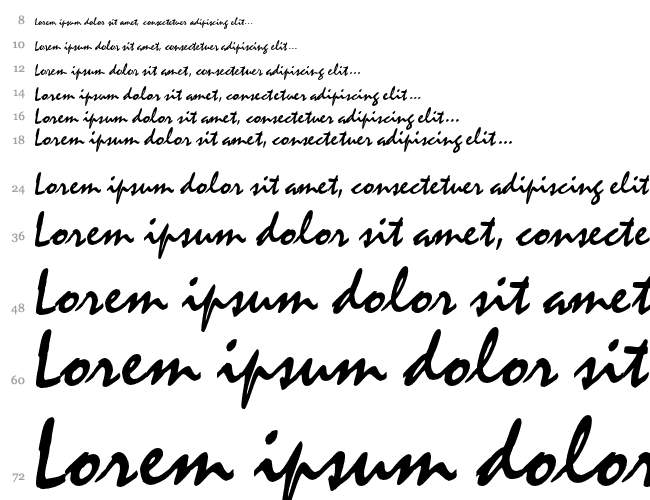 8 Lorem ipsum dolor sit amet, consectetuer adipiscing elit...
10 Lorem ipsum dolor sit amet, consectetuer adipiscing elit...
12 Lorem ipsum dolor sit amet, consectetuer adipiscing elit...
14 Lorem ipsum dolor sit amet, consectetuer adipiscing elit...
16 Lorem ipsum dolor sit amet, consectetuer adipiscing elit...
18 Lorem ipsum dolor sit amet, consectetuer adipiscing elit...
24 Lorem ipsum dolor sit amet, consectetuer adipiscing elit
36 Lorem ipsum dolor sit amet, consecte
48 Lorem ipsum dolor sit amet
60 Lorem ipsum dolor sit
72 Lorem ipsum dolor